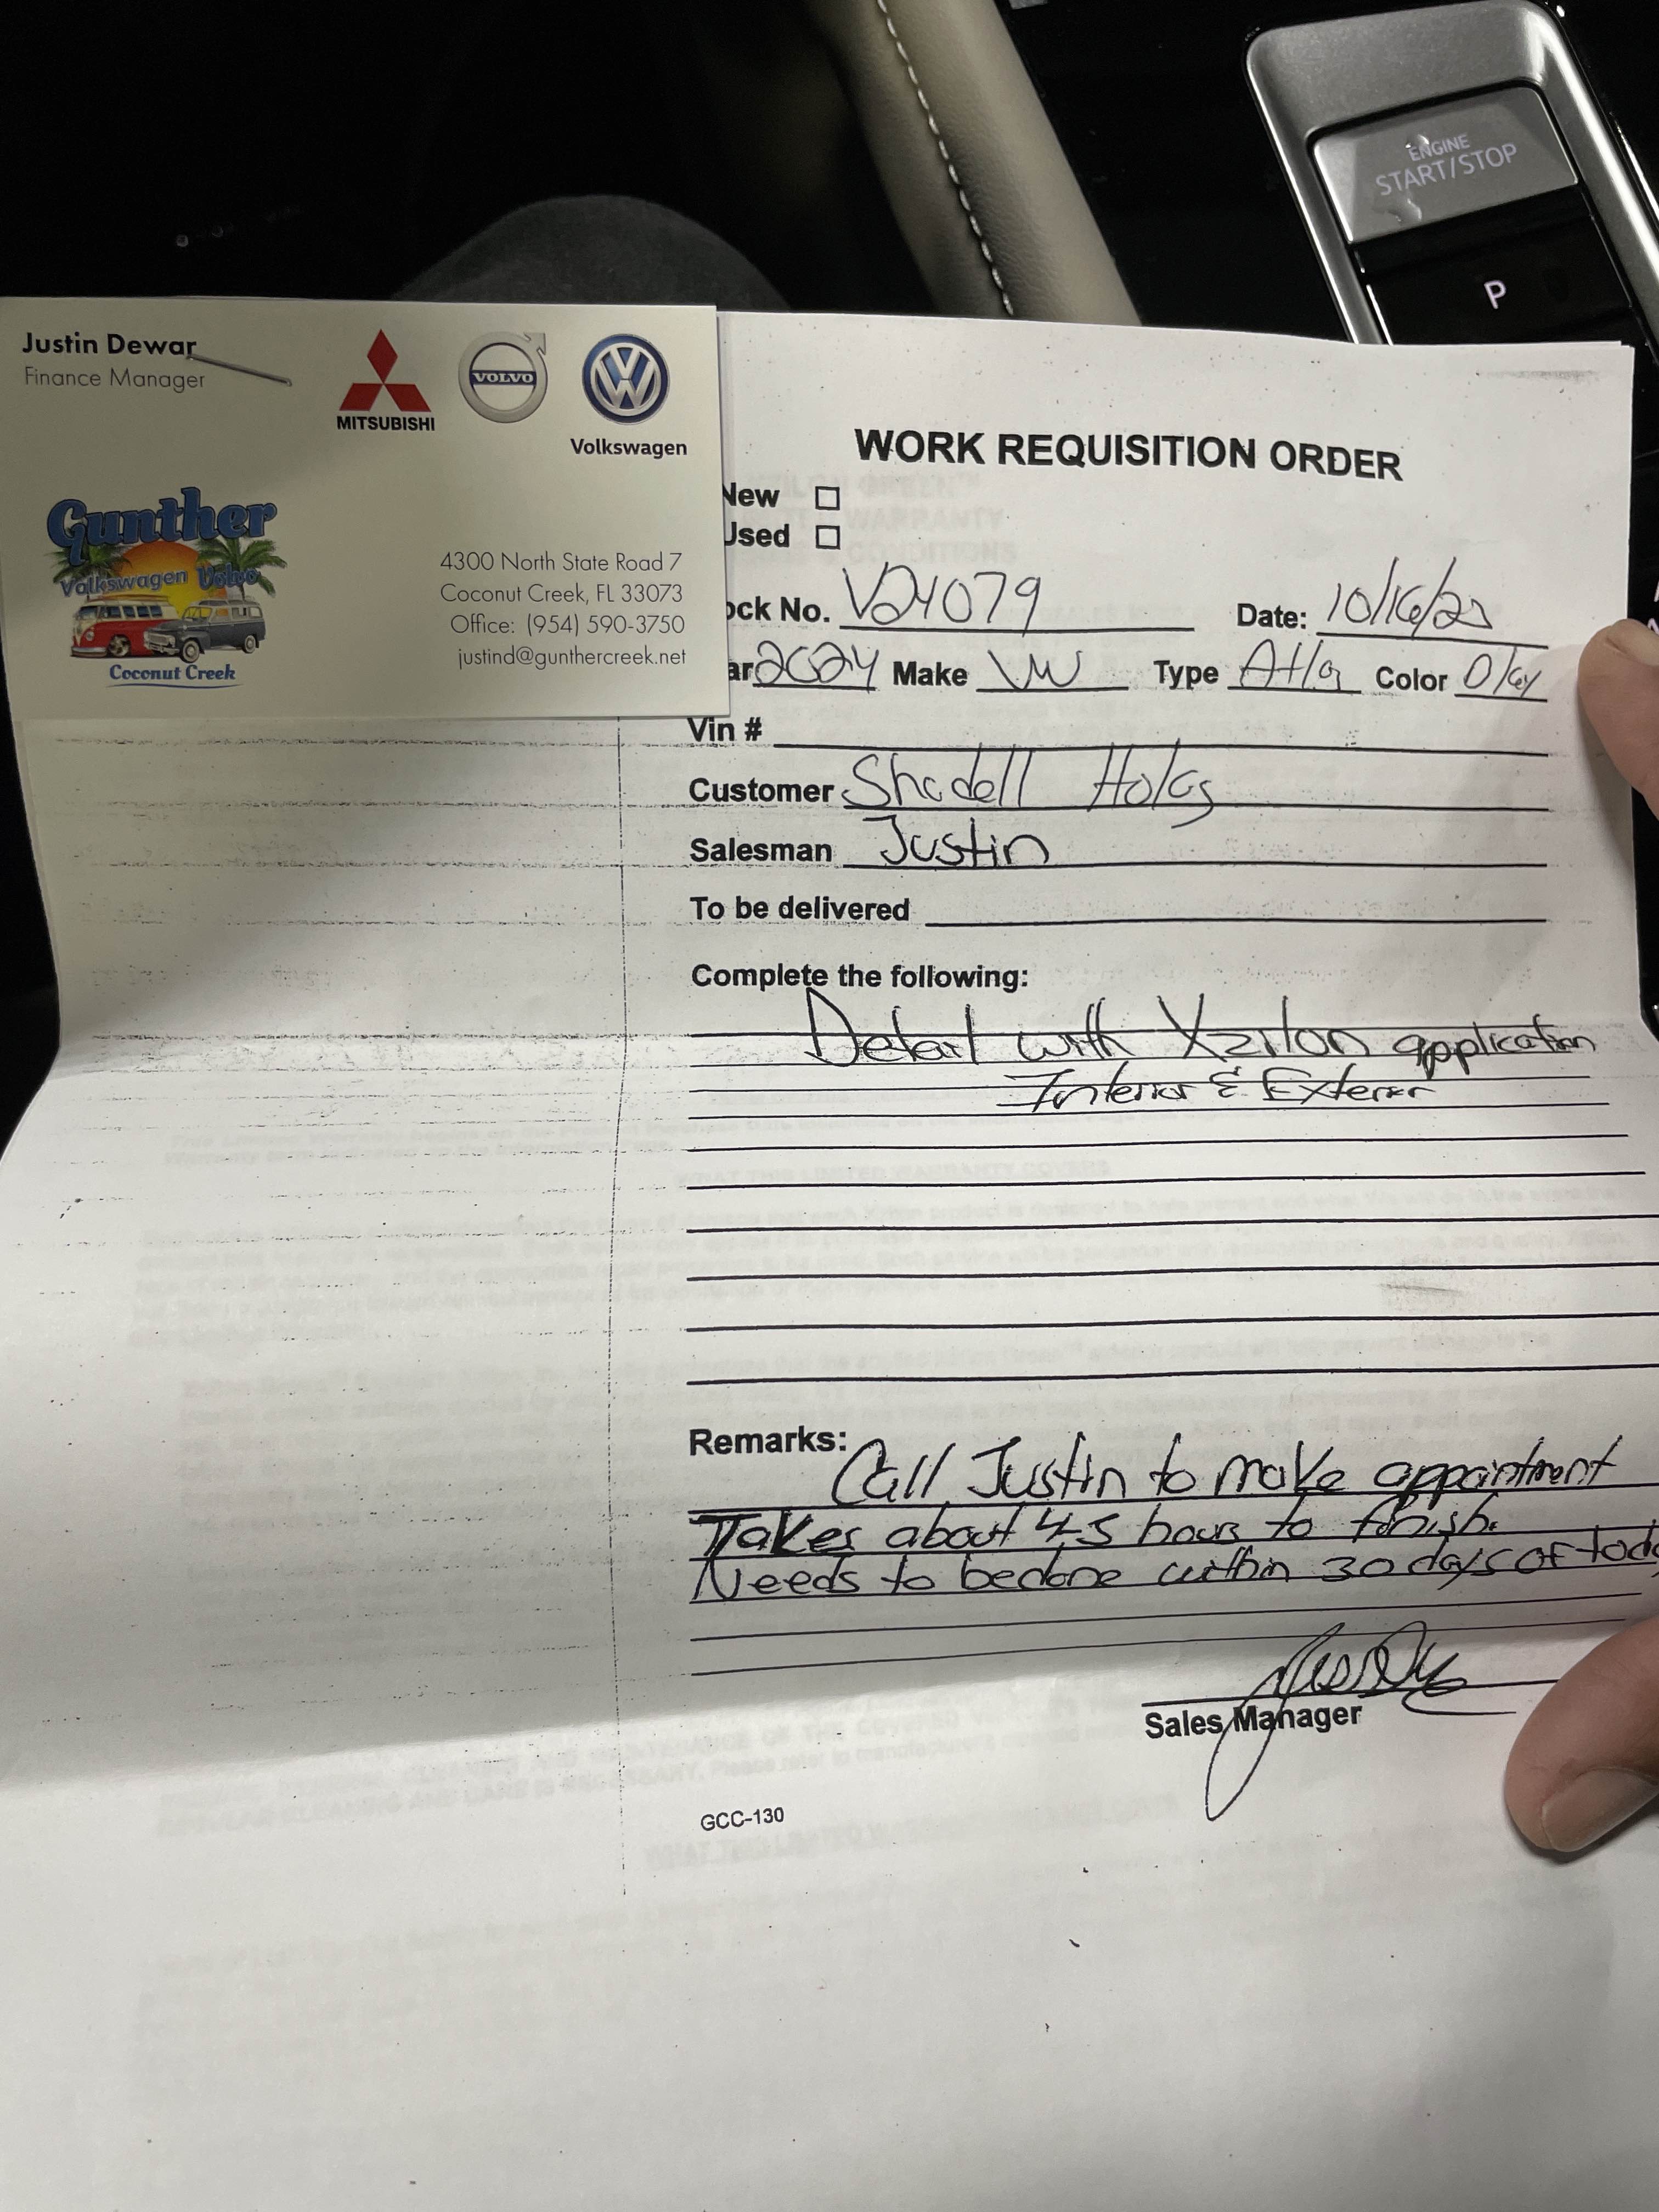 ENGINE
START/STOP
P
Justin Dewar
Finance Manager
MITSUBISHI
VOLVO
Volkswagen
Gunther
Volkswagen Volvo
Coconut Creek
4300 North State Road 7
Coconut Creek, FL 33073
Office: (954) 590-3750
justind@gunthercreek.net
WORK REQUISITION ORDER
New
Used
ock No. V24079 Date:
ar 2024 Make VW Type Color
Vin #
Customer Shadell
Salesman Justin
To be delivered
Complete the following:
Detail with Xzilon application
Interior & Exterior
Remarks:
Call Justin to make appointment
Takes about 4-5 hours to finish.
Needs to be done within 30 days of toda
Sales Manager
GCC-130